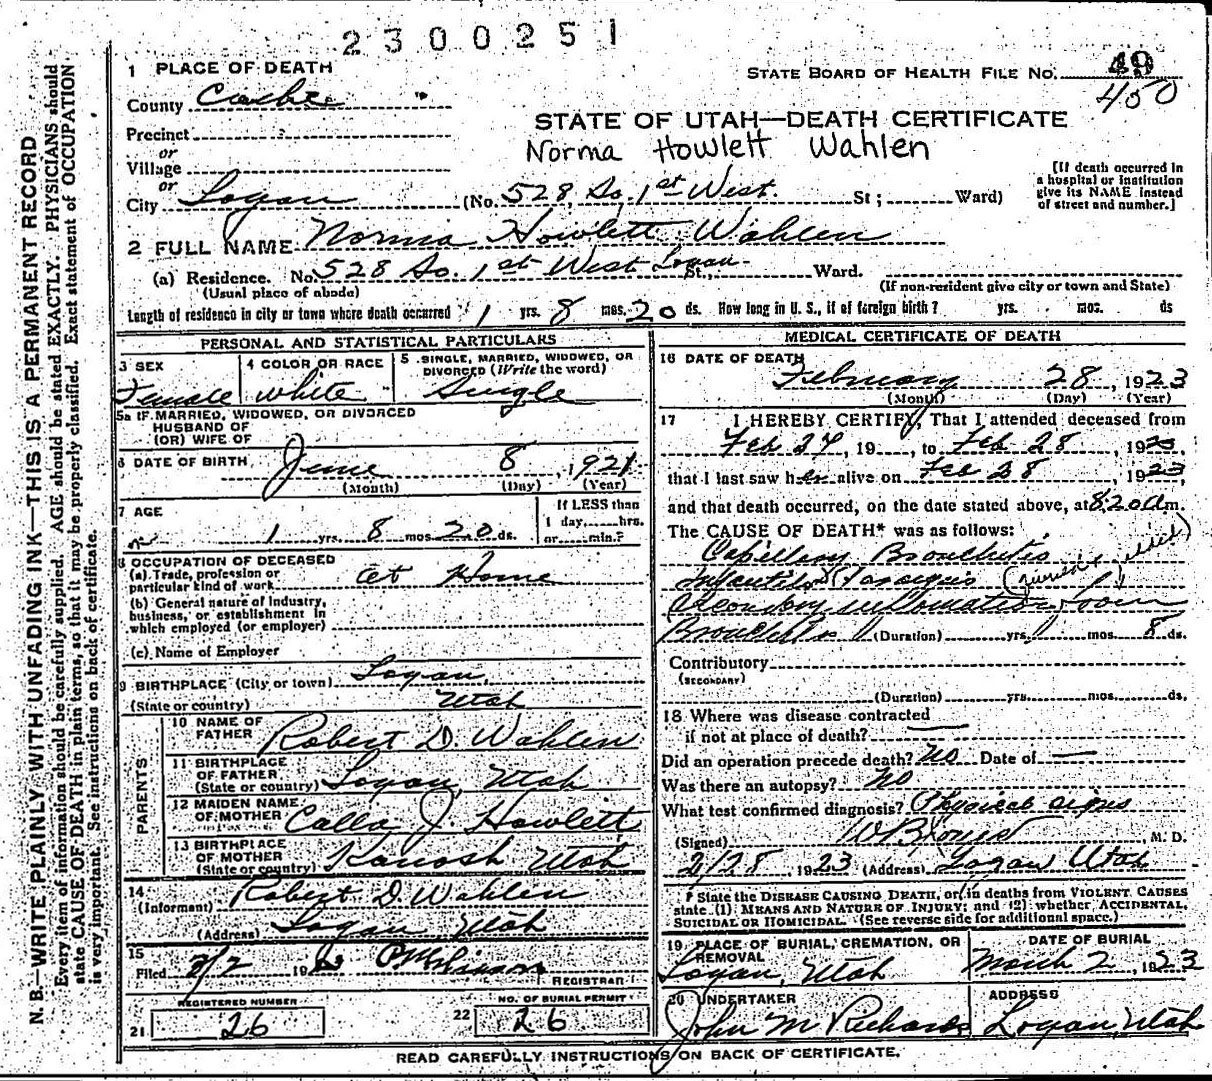 2300251
1 PLACE OF DEATH
STATE BOARD OF HEALTH FILE NO. 49
450
County Cache
STATE OF UTAH—DEATH CERTIFICATE
Precinct
Norma Howlett Wahlen
or
Village
or
City Logan (No. 528 So, 1st West. St; Ward)
[If death occurred in
a hospital or institution
give its NAME instead
of street and number.]
2 FULL NAME Norma Howlett Wahlen
(a) Residence. No. 528 So. 1st West Logan St., Ward.
(Usual place of abode)
(If non-resident give city or town and State)
Length of residence in city or town where death occurred 1 yrs. 8 mos. 20 ds. How long in U. S., if of foreign birth? yrs. mos. ds
PERSONAL AND STATISTICAL PARTICULARS
3 SEX
Female
4 COLOR OR RACE
white
5 SINGLE, MARRIED, WIDOWED, OR
DIVORCED (Write the word)
Single
5a IF MARRIED, WIDOWED, OR DIVORCED
HUSBAND OF
(OR) WIFE OF
6 DATE OF BIRTH June 8, 1921
(Month) (Day) (Year)
7 AGE
1 yrs. 8 mos. 20 ds.
If LESS than
1 day, hrs.
or min.?
8 OCCUPATION OF DECEASED
(a) Trade, profession or
particular kind of work at Home
(b) General nature of Industry,
business, or establishment in
which employed (or employer)
(c) Name of Employer
9 BIRTHPLACE (City or town) Logan
(State or country) Utah
PARENTS
10 NAME OF
FATHER Robert D. Wahlen
11 BIRTHPLACE
OF FATHER
(State or country) Logan, Utah
12 MAIDEN NAME
OF MOTHER Calla J. Howlett
13 BIRTHPLACE
OF MOTHER
(State or country) Kanosh Utah
14
(Informant) Robert D. Wahlen
(Address) Logan Utah
15
Filed 19
REGISTRAR
REGISTERED NUMBER
21 26
NO. OF BURIAL PERMIT
22 26
MEDICAL CERTIFICATE OF DEATH
16 DATE OF DEATH
February 28, 1923
(Month) (Day) (Year)
17 I HEREBY CERTIFY, That I attended deceased from
Feb 27, 19, to Feb 28, 1923,
that I last saw her alive on Feb 28, 1923,
and that death occurred, on the date stated above, at 8:20 a m.
The CAUSE OF DEATH* was as follows:
Capillary Bronchitis
Secondary inflammation from
Bronchitis (Duration) yrs. mos. 8 ds.
Contributory
(SECONDARY)
(Duration) yrs. mos. ds.
18 Where was disease contracted
if not at place of death? —
Did an operation precede death? No Date of —
Was there an autopsy? No
What test confirmed diagnosis? Physical signs
(Signed) M. D.
2/28, 1923 (Address) Logan Utah
* State the DISEASE CAUSING DEATH, or, in deaths from VIOLENT CAUSES
state (1) MEANS AND NATURE OF INJURY; and (2) whether ACCIDENTAL,
SUICIDAL OR HOMICIDAL. (See reverse side for additional space.)
19 PLACE OF BURIAL, CREMATION, OR
REMOVAL
Logan, Utah
DATE OF BURIAL
March 2, 1923
20 UNDERTAKER
John M Richards
ADDRESS
Logan, Utah
READ CAREFULLY INSTRUCTIONS ON BACK OF CERTIFICATE.
N. B.—WRITE PLAINLY WITH UNFADING INK—THIS IS A PERMANENT RECORD
Every item of information should be carefully supplied. AGE should be stated EXACTLY. PHYSICIANS should
state CAUSE OF DEATH in plain terms, so that it may be properly classified. Exact statement of OCCUPATION
is very important. See instructions on back of certificate.